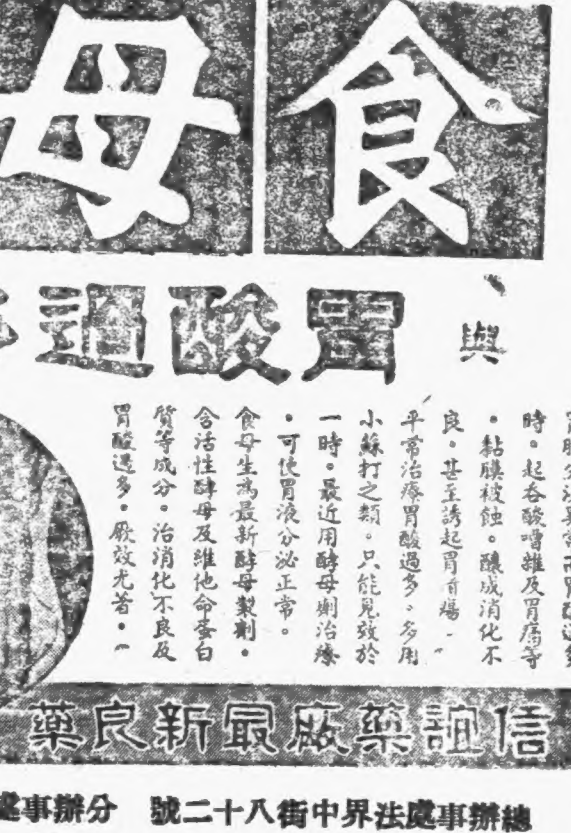 食母
與胃酸過
時。起吞酸嘈雜及胃痛等
。黏膜被蝕。釀成消化不
良。甚至誘起胃瘍。
平常治療胃酸過多。多用
小蘇打之類。只能見效於
一時。最近用酵母劑治療
。可使胃液分泌正常。
食母生為最新酵母製劑。
含活性酵母及維他命蛋白
質等成分。治消化不良及
胃酸過多。厥效尤著。
信誼藥廠最新良藥
總辦事處法界中街八十二號 分辦事處